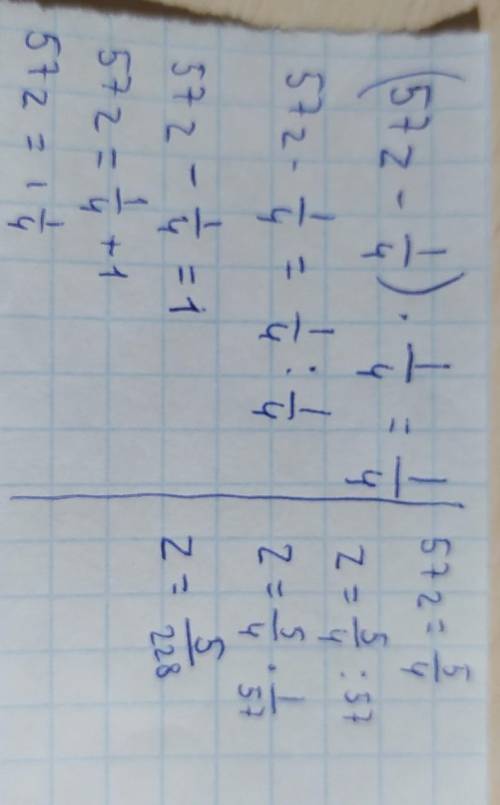 (57z - 1/4) · 1/4 = 1/4
57z - 1/4 = 1/4 : 1/4
57z - 1/4 = 1
57z = 1/4 + 1
57z = 1 1/4
57z = 5/4
z = 5/4 : 57
z = 5/4 · 1/57
z = 5/228